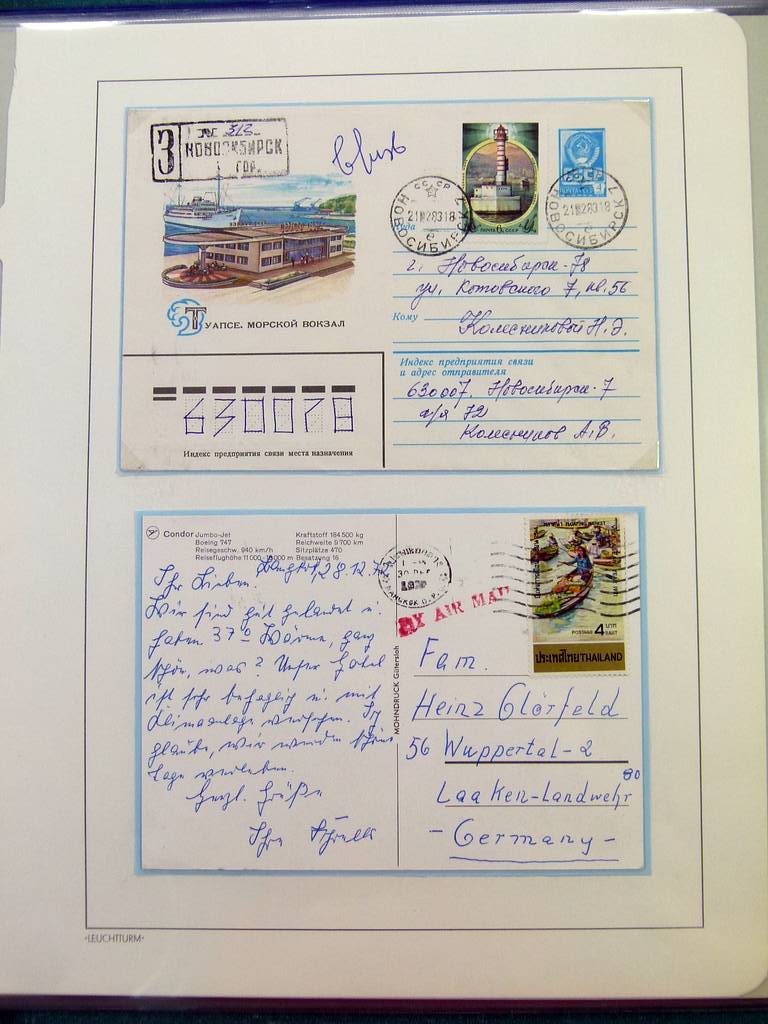 З
№ 373
НОВОСИБИРСК
ГОР.
ТУАПСЕ. МОРСКОЙ ВОКЗАЛ
СССР
21 83 18
НОВОСИБИРСК 7
ПОЧТА СССР
СССР
21 83 18
НОВОСИБИРСК 7
Куда
г. Новосибирск-78
ул. Котовского 7, кв. 56
Кому
Колесниковой Н. Э.
Индекс предприятия связи
и адрес отправителя
630007, Новосибирск-7
а/я 72
Колесников А.В.
630078
Индекс предприятия связи места назначения
Condor Jumbo-Jet
Boeing 747
Reisegeschw. 940 km/h
Reiseflughöhe 11 000 - 13 000 m
Kraftstoff 184 500 kg
Reichweite 9 700 km
Sitzplätze 470
Besatzung 16
Bangkok, 28.12.
Ihr Lieben!
Wir sind gut gelandet u.
haben 37° Wärme, ganz
schön, was? Unser Hotel
ist sehr behaglich u. mit
Klimaanlage versehen. Ich
glaube, wir werden schöne
Tage verleben.
Herzl. Grüße
Ihre
MOHNDRUCK Gütersloh
BY AIR MAIL
FLOATING MARKET
POSTAGE 4 บาท BAHT
ประเทศไทย THAILAND
Fam.
Heinz Glörfeld
56 Wuppertal-2
Laaken-Landwehr 80
- Germany -
·LEUCHTTURM·